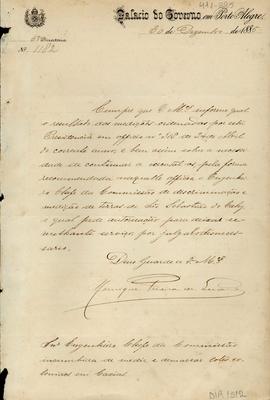 411-395
Palacio do Governo em Porto Alegre,
30 de Dezembro de 1885
5ª Directoria
Nº 1182
Cumpre que V. Mcê informe qual
o resultado das medições ordenadas por esta
Presidencia em officio nº de de Abril
do corrente anno, e bem assim sobre a neces-
sidade de continuar a executal-as pela forma
recommendada naquelle officio o Engenhei-
ro Chefe da Commissão de discriminação e
medição de terras de São Sebastião do Cahy,
o qual pede autorisação para deixar
semelhante serviço, por julgal-o desneces-
sario.
Deus Guarde a V. Mcê
Henrique Pereira de Lucena
Snr. Engenheiro Chefe da Commissão
incumbida de medir e demarcar lotes co-
loniaes em Caxias
DIR 1512